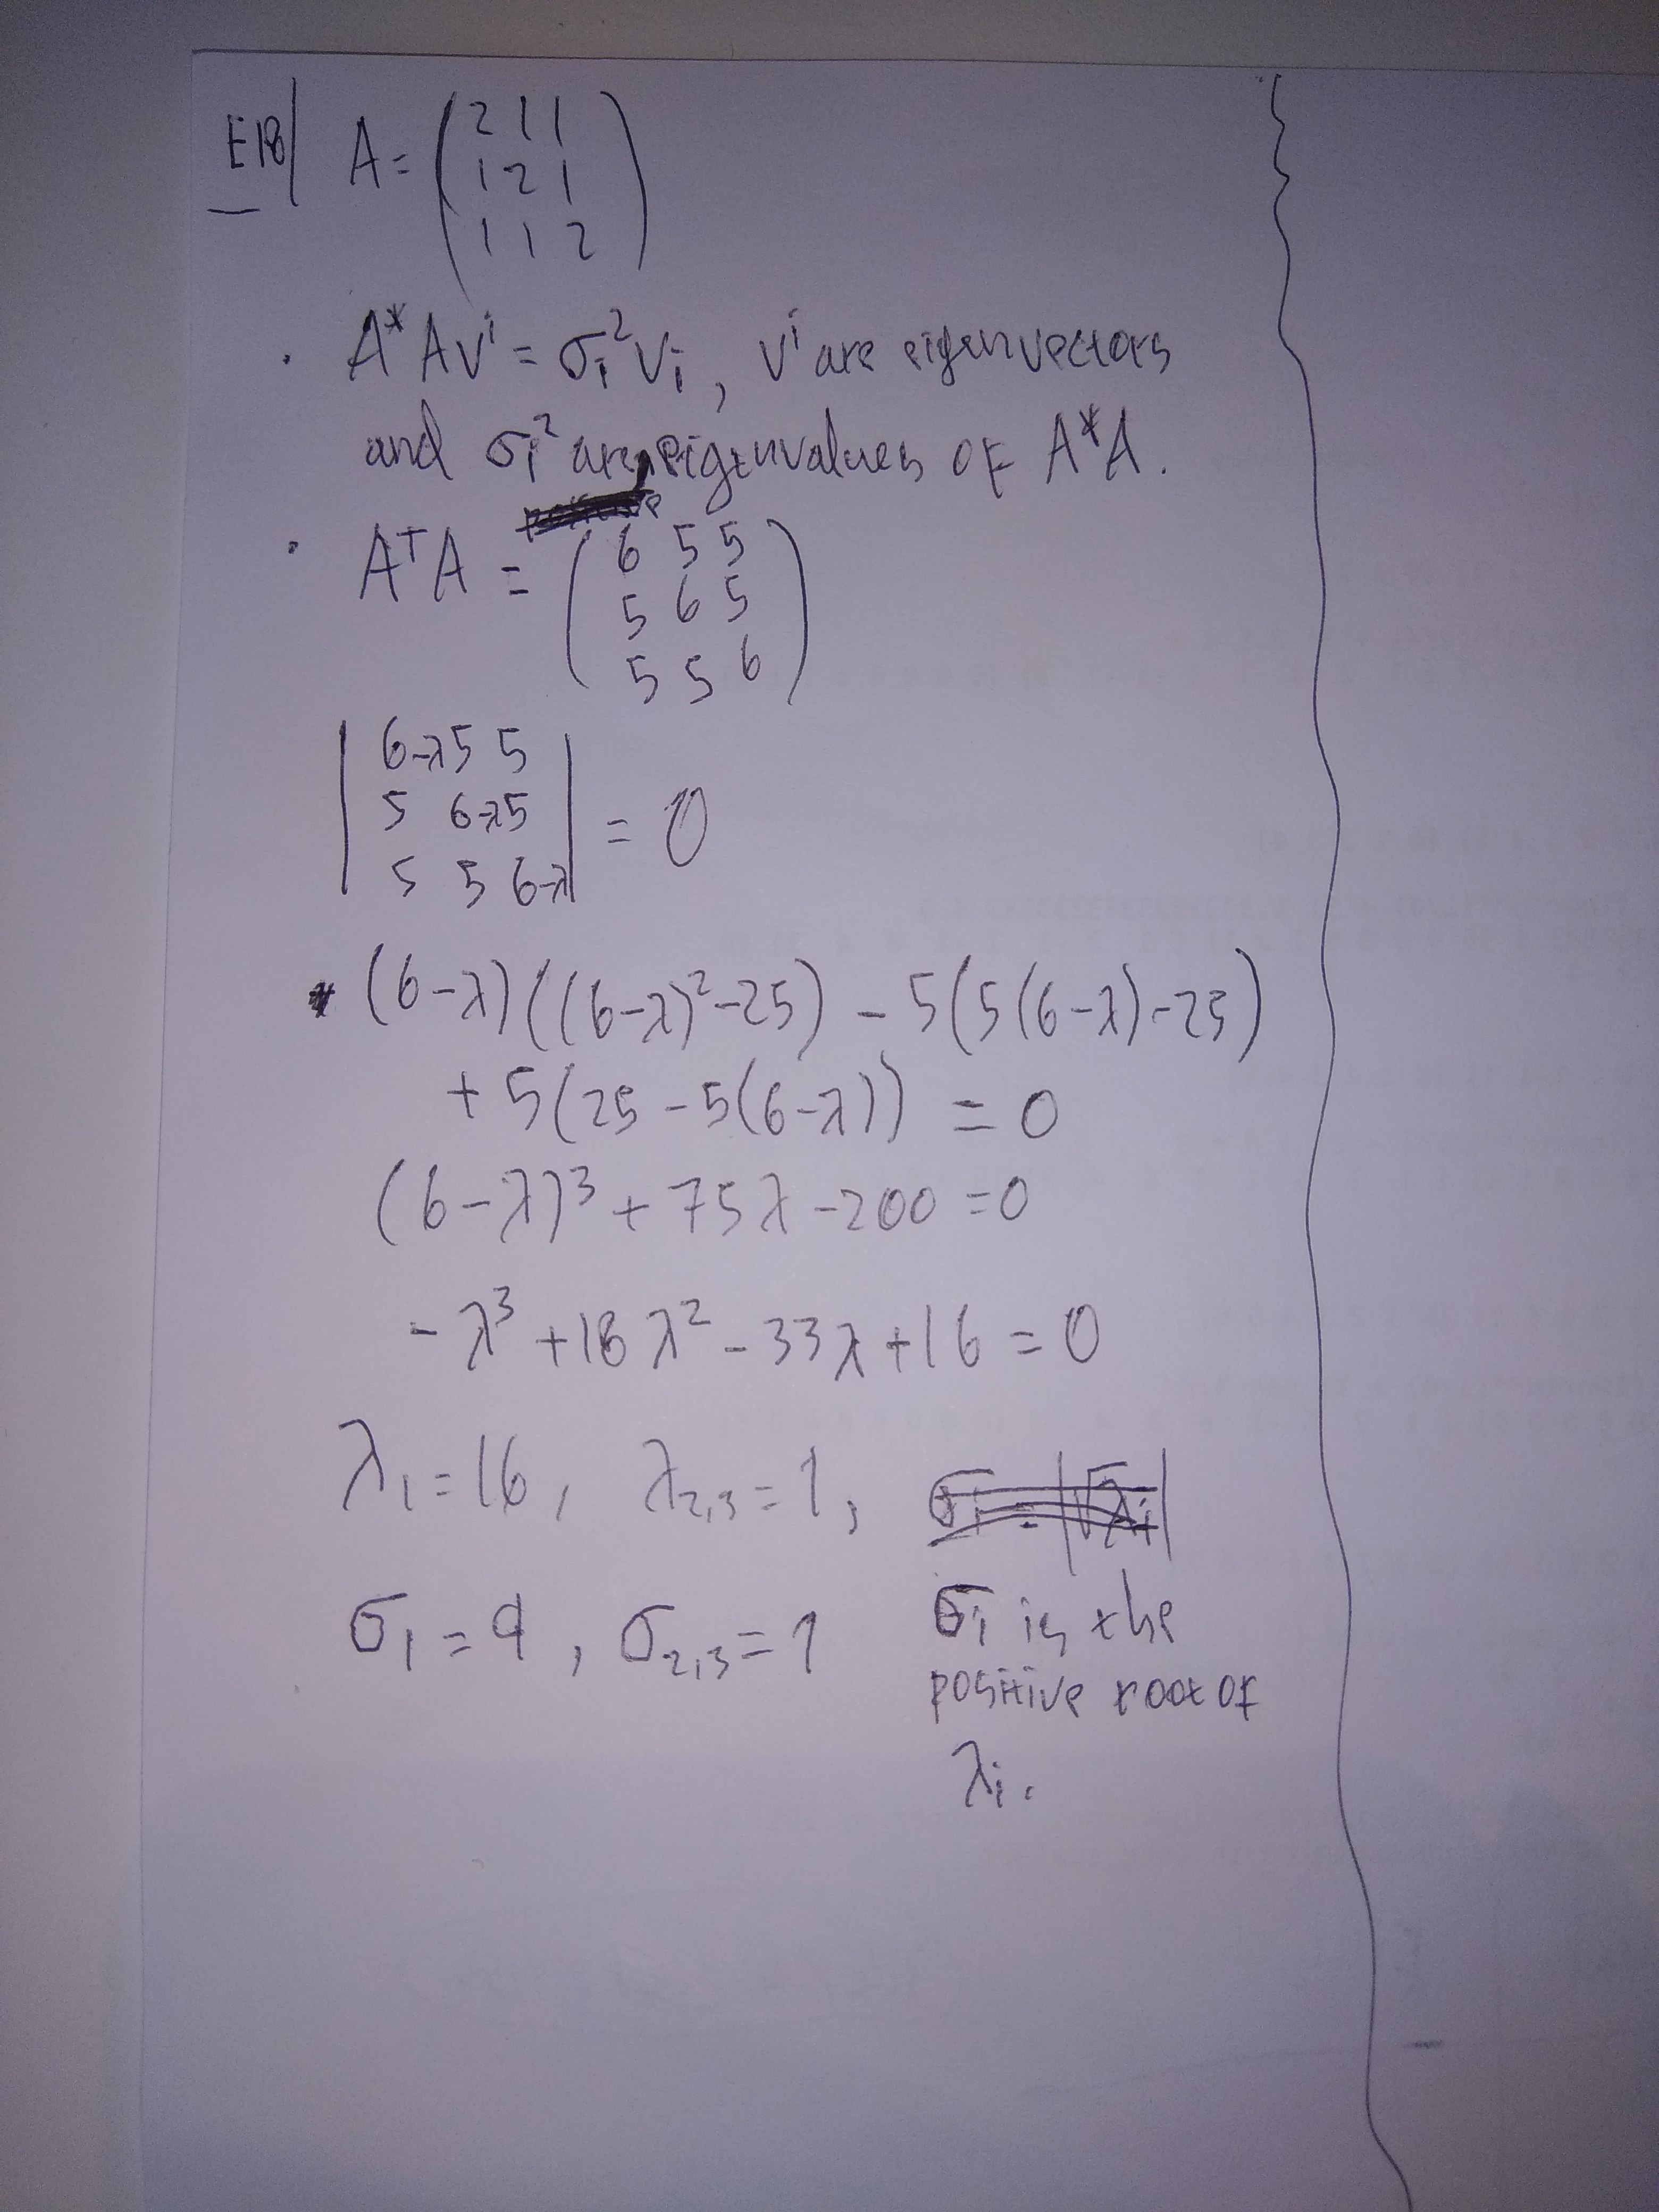 E18
A = (2 1 1
1 2 1
1 1 2)
· A*Avⁱ = σᵢ²vᵢ, vⁱ are eigenvectors
and σᵢ² are, eigenvalues of A*A.
· AᵀA = (6 5 5
5 6 5
5 5 6)
|6-λ 5 5
5 6-λ 5
5 5 6-λ| = 0
(6-λ)((6-λ)²-25) - 5(5(6-λ)-25)
+ 5(25-5(6-λ)) = 0
(6-λ)³ + 75λ - 200 = 0
-λ³ + 18λ² - 33λ + 16 = 0
λ₁ = 16, λ₂,₃ = 1, σᵢ = |√λᵢ|
σ₁ = 4, σ₂,₃ = 1 σᵢ is the
positive root of
λᵢ.